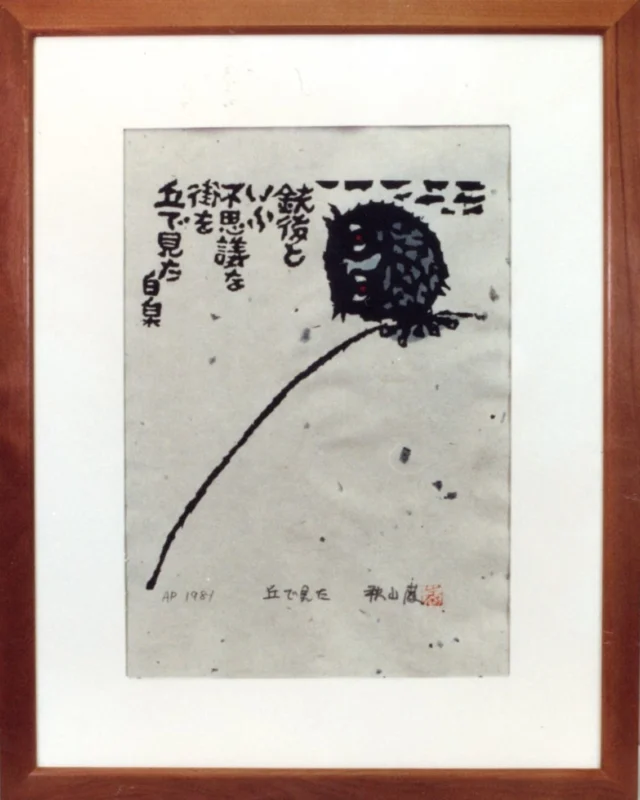 銃後と
いふ
不思議な
街を
丘で見た
白泉
AP 1981
丘で見た
秋山巌